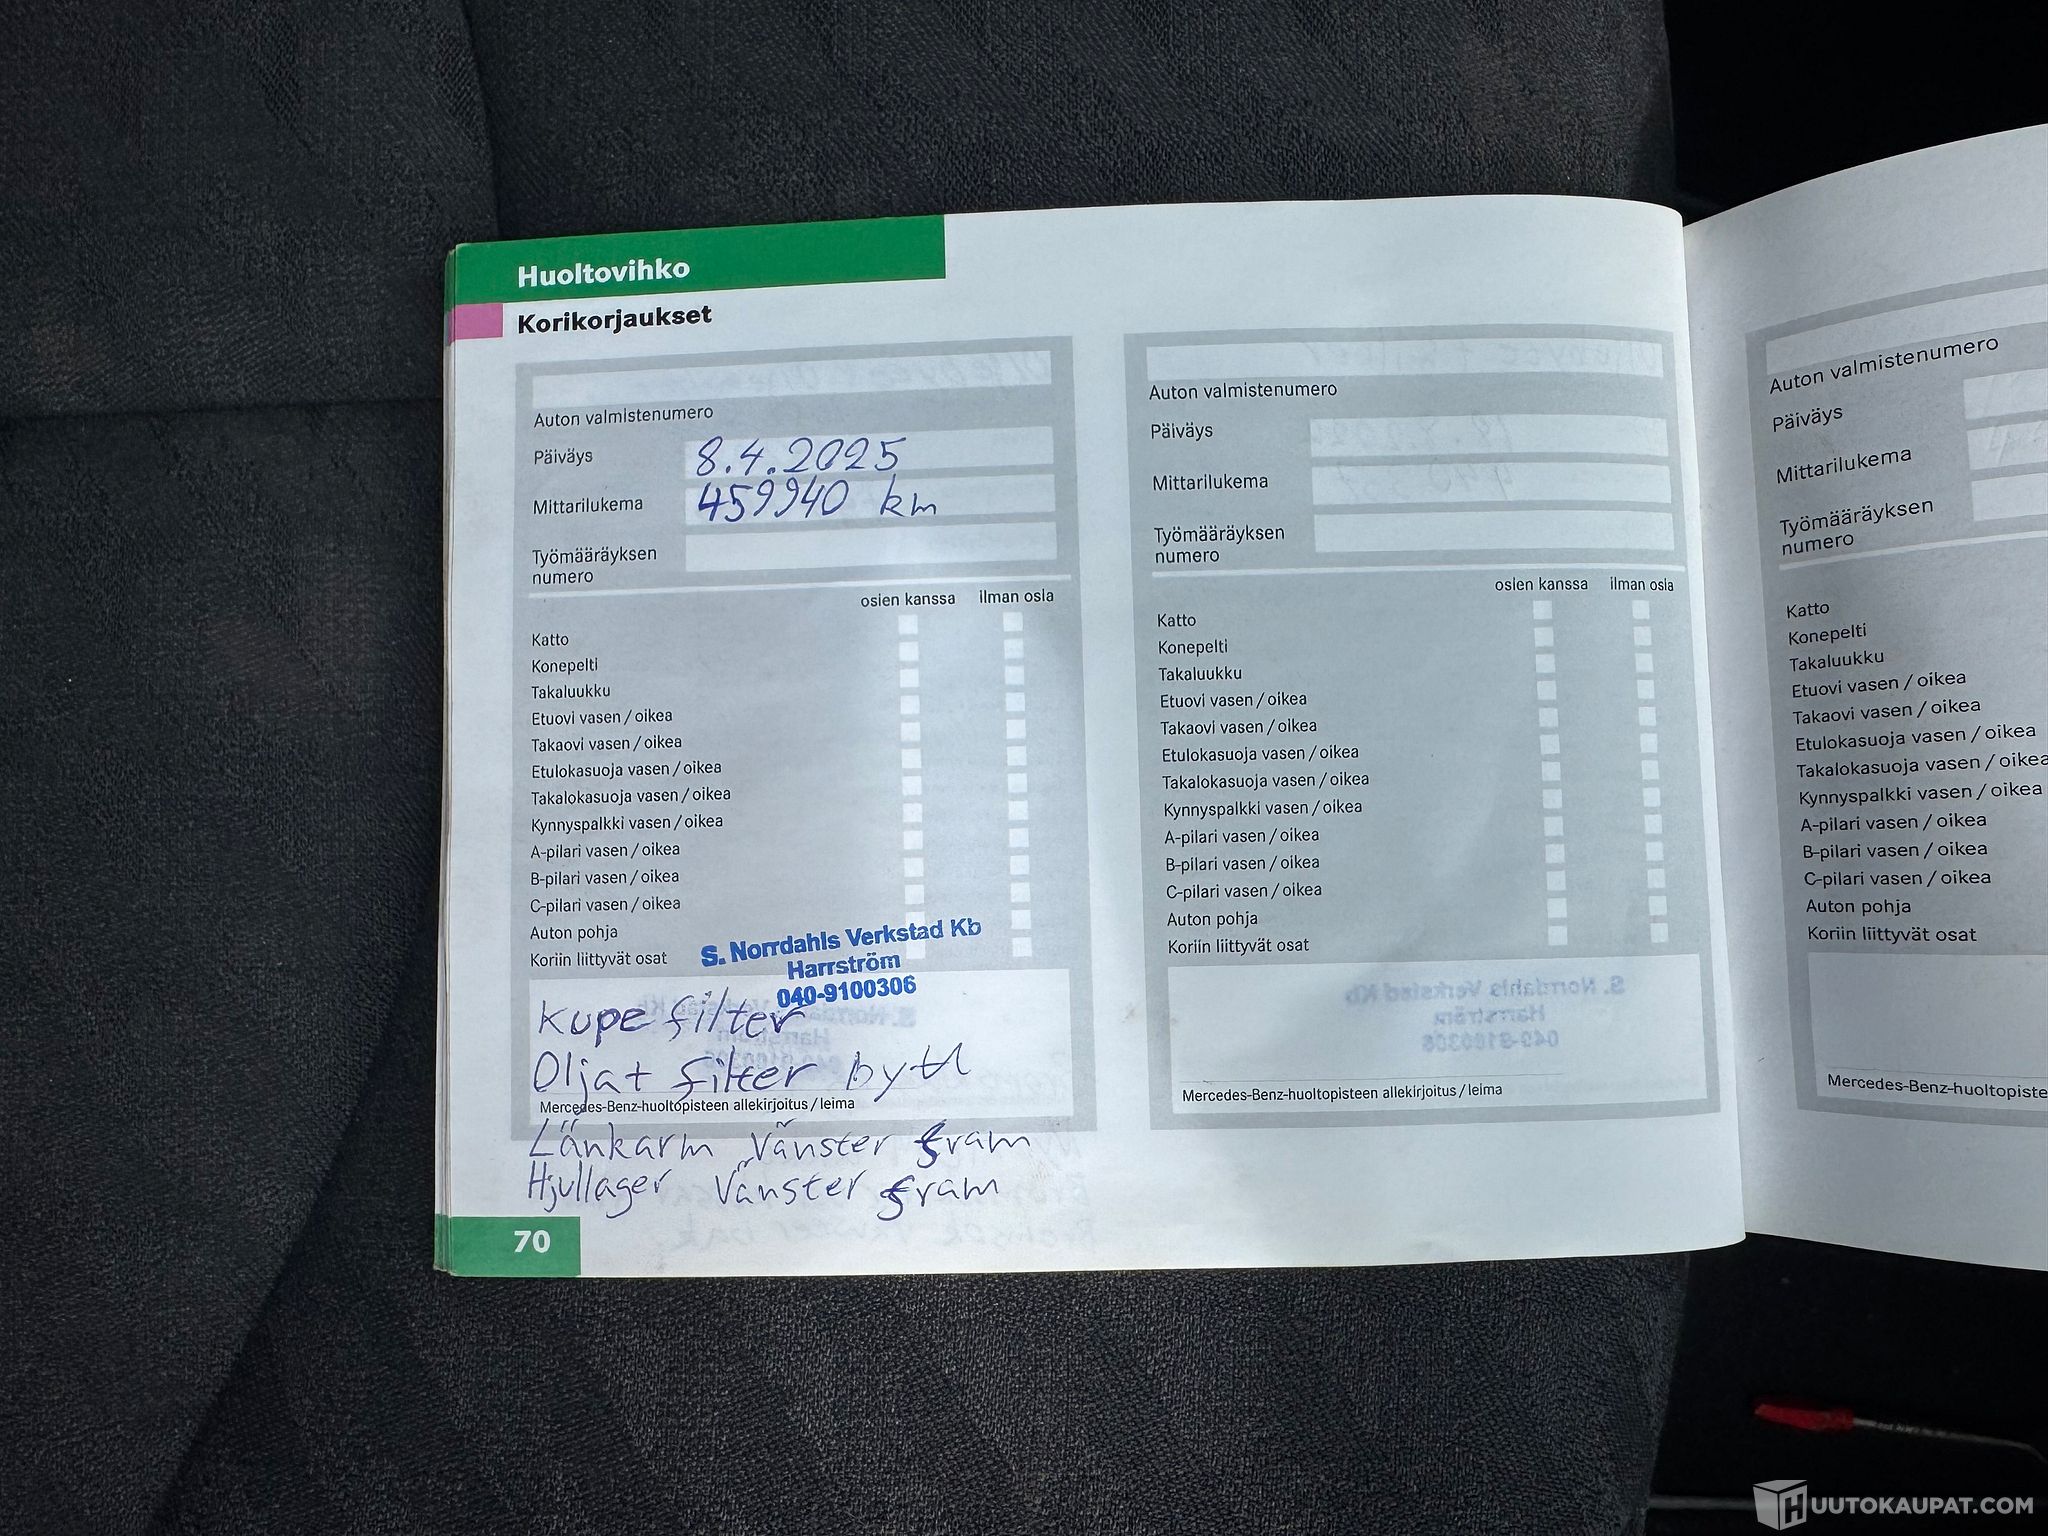 Huoltovihko
Korikorjaukset
Auton valmistenumero
Päiväys 8.4.2025
Mittarilukema 459940 km
Työmääräyksen
numero
osien kanssa ilman osia
Katto
Konepelti
Takaluukku
Etuovi vasen / oikea
Takaovi vasen / oikea
Etulokasuoja vasen / oikea
Takalokasuoja vasen / oikea
Kynnyspalkki vasen / oikea
A-pilari vasen / oikea
B-pilari vasen / oikea
C-pilari vasen / oikea
Auton pohja
Koriin liittyvät osat
S. Norrdahls Verkstad Kb
Harrström
040-9100306
Kupefilter
Oljat filter bytt
Mercedes-Benz-huoltopisteen allekirjoitus / leima
Länkarm Vänster fram
Hjullager Vänster fram
70
Auton valmistenumero
Päiväys
Mittarilukema
Työmääräyksen
numero
osien kanssa ilman osia
Katto
Konepelti
Takaluukku
Etuovi vasen / oikea
Takaovi vasen / oikea
Etulokasuoja vasen / oikea
Takalokasuoja vasen / oikea
Kynnyspalkki vasen / oikea
A-pilari vasen / oikea
B-pilari vasen / oikea
C-pilari vasen / oikea
Auton pohja
Koriin liittyvät osat
Mercedes-Benz-huoltopisteen allekirjoitus / leima
Auton valmistenumero
Päiväys
Mittarilukema
Työmääräyksen
numero
Katto
Konepelti
Takaluukku
Etuovi vasen / oikea
Takaovi vasen / oikea
Etulokasuoja vasen / oikea
Takalokasuoja vasen / oikea
Kynnyspalkki vasen / oikea
A-pilari vasen / oikea
B-pilari vasen / oikea
C-pilari vasen / oikea
Auton pohja
Koriin liittyvät osat
Mercedes-Benz-huoltopiste
HUUTOKAUPAT.COM